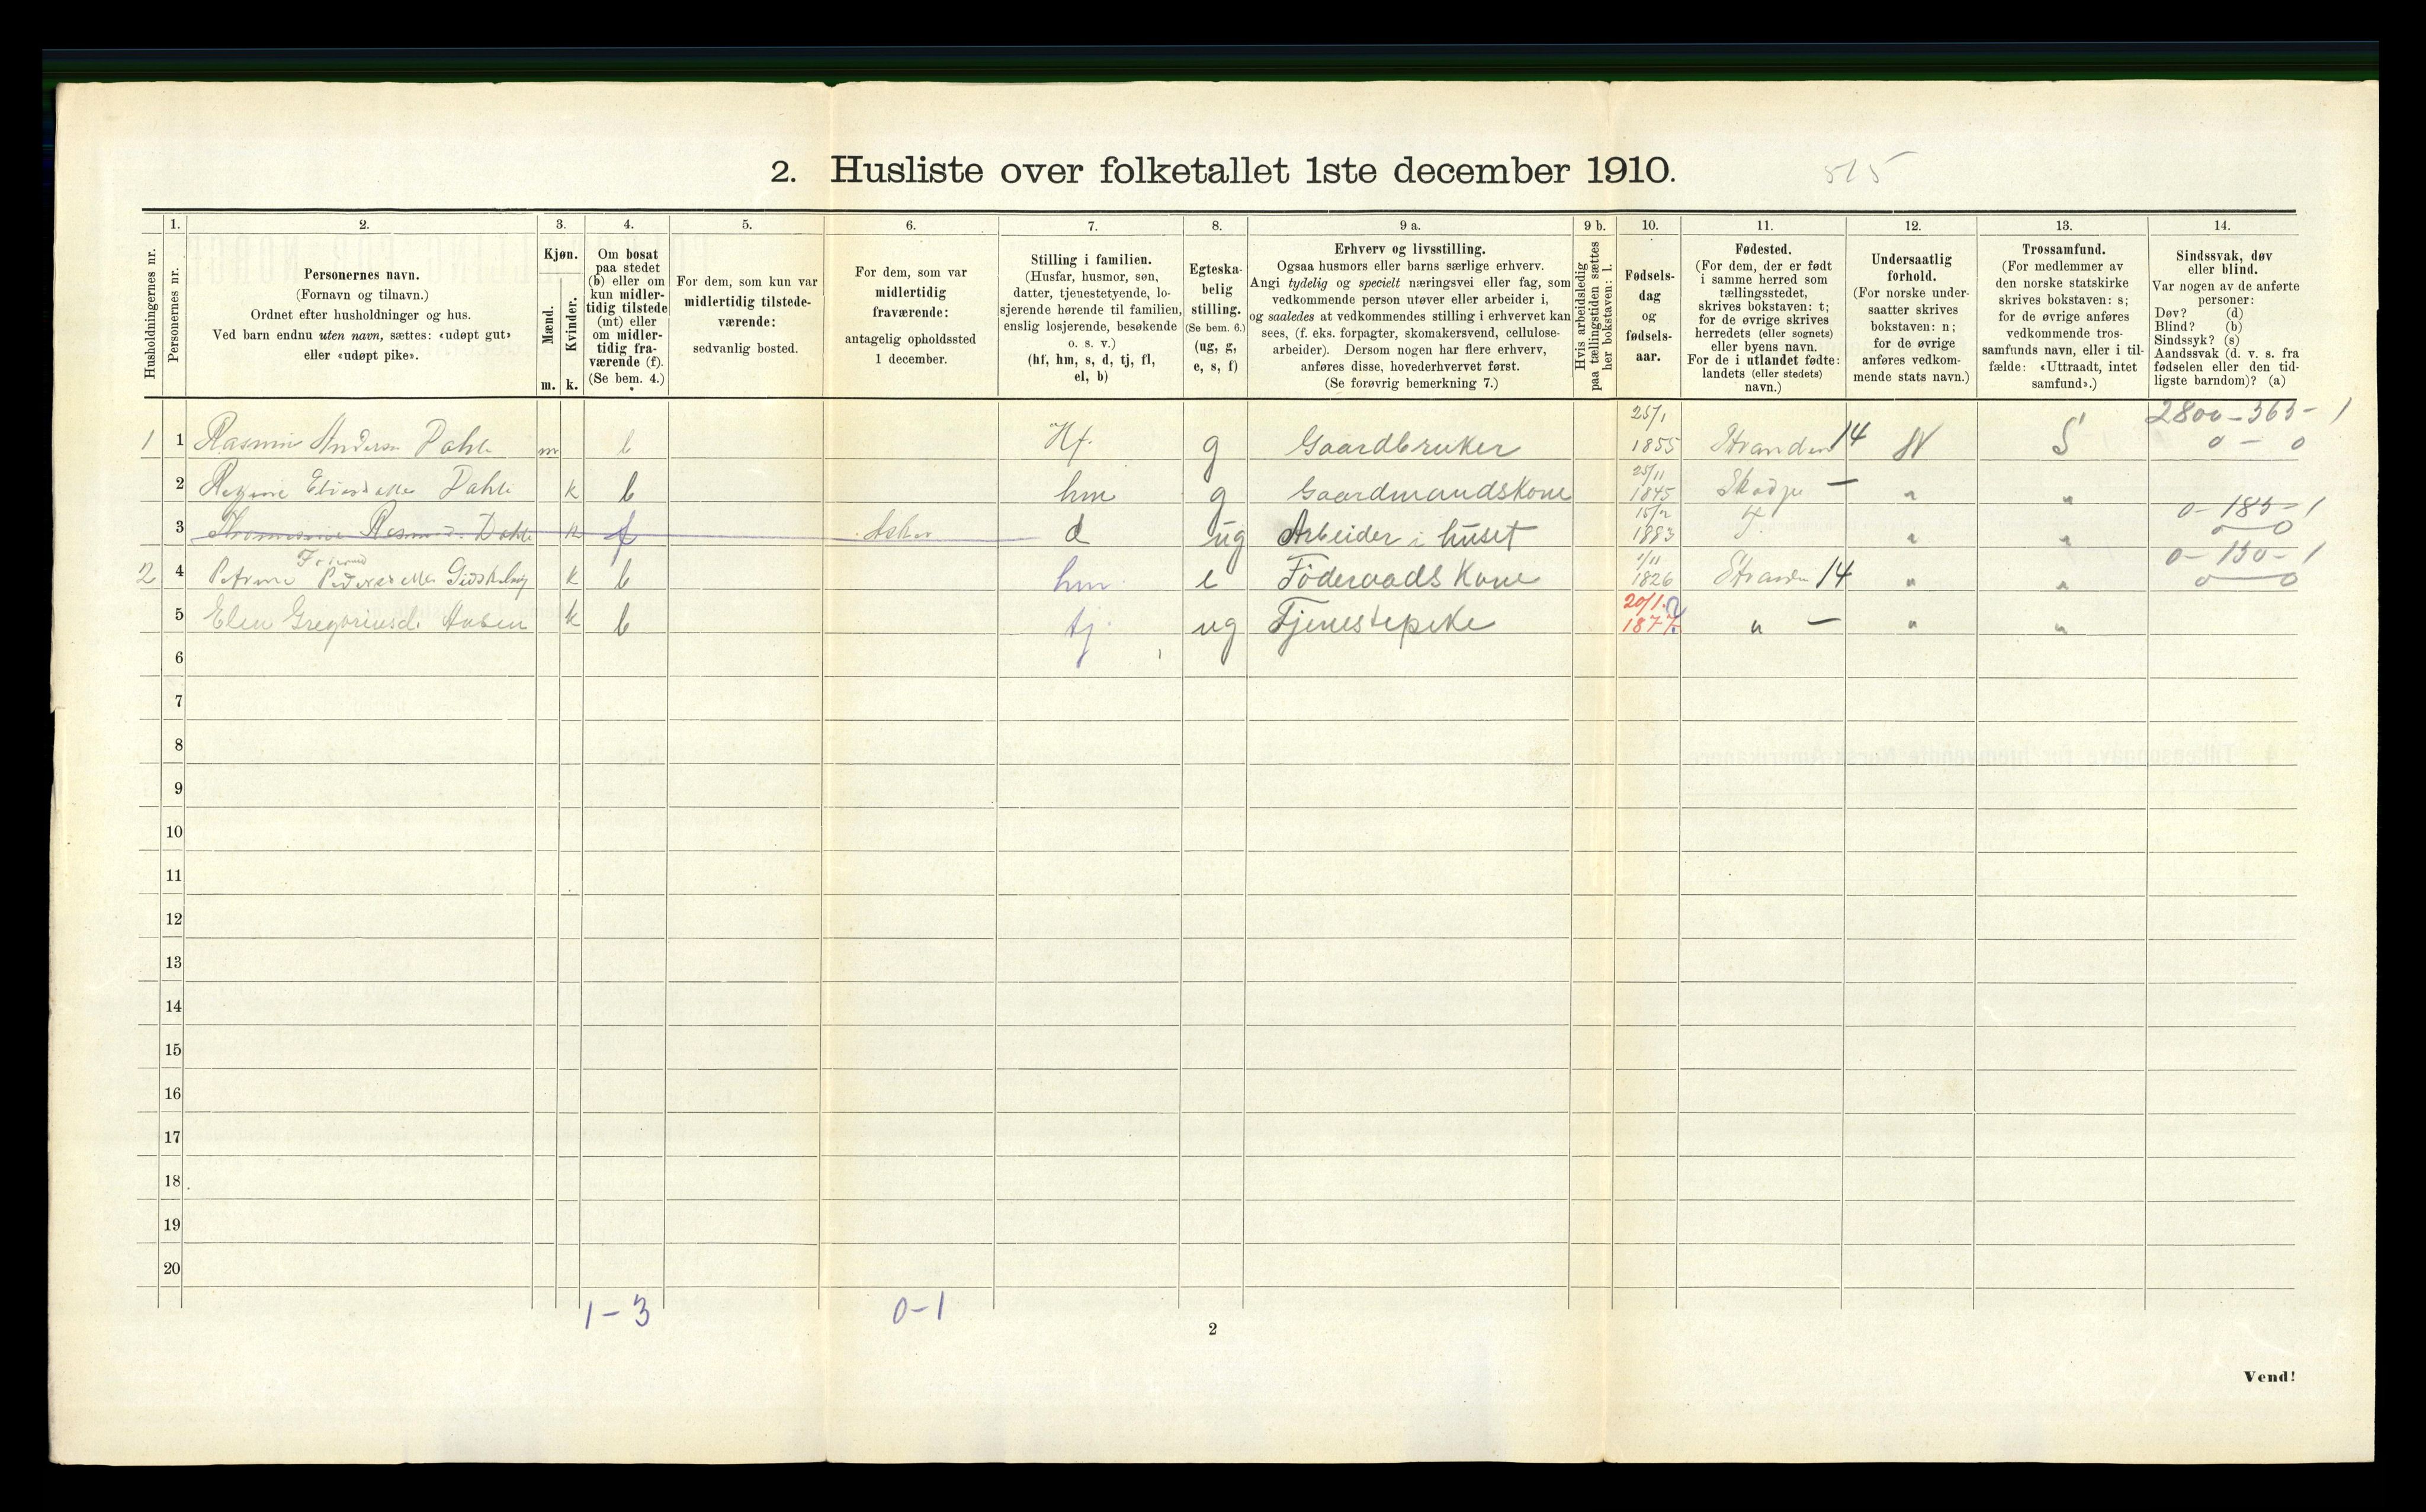 2. Husliste over folketallet 1ste december 1910. 515
Husholdningernes nr.
1. Personernes nr.
2.
Personernes navn.
(Fornavn og tilnavn.)
Ordnet efter husholdninger og hus.
Ved barn endnu uten navn, sættes: «udøpt gut»
eller «udøpt pike».
3.
Kjøn.
Mænd. Kvinder.
m. k.
4.
Om bosat
paa stedet
(b) eller om
kun midler-
tidig tilstede
(mt) eller
om midler-
tidig fra-
værende (f).
(Se bem. 4.)
5.
For dem, som kun var
midlertidig tilstede-
værende:
sedvanlig bosted.
6.
For dem, som var
midlertidig
fraværende:
antagelig opholdssted
1 december.
7.
Stilling i familien.
(Husfar, husmor, søn,
datter, tjenestetyende, lo-
sjerende hørende til familien,
enslig losjerende, besøkende
o. s. v.)
(hf, hm, s, d, tj, fl,
el, b)
8.
Egteska-
belig
stilling.
(Se bem. 6.)
(ug, g,
e, s, f)
9 a.
Erhverv og livsstilling.
Ogsaa husmors eller barns særlige erhverv.
Angi tydelig og specielt næringsvei eller fag, som
vedkommende person utøver eller arbeider i,
og saaledes at vedkommendes stilling i erhvervet kan
sees, (f. eks. forpagter, skomakersvend, cellulose-
arbeider). Dersom nogen har flere erhverv,
anføres disse, hovederhvervet først.
(Se forøvrig bemerkning 7.)
9 b.
Hvis arbeidsledig
paa tællingstiden sættes
her bokstaven: l.
10.
Fødsels-
dag
og
fødsels-
aar.
11.
Fødested.
(For dem, der er født
i samme herred som
tællingsstedet,
skrives bokstaven: t;
for de øvrige skrives
herredets (eller sognets)
eller byens navn.
For de i utlandet fødte:
landets (eller stedets)
navn.)
12.
Undersaatlig
forhold.
(For norske under-
saatter skrives
bokstaven: n;
for de øvrige
anføres vedkom-
mende stats navn.)
13.
Trossamfund.
(For medlemmer av
den norske statskirke
skrives bokstaven: s;
for de øvrige anføres
vedkommende tros-
samfunds navn, eller i til-
fælde: «Uttraadt, intet
samfund».)
14.
Sindssvak, døv
eller blind.
Var nogen av de anførte
personer:
Døv? (d)
Blind? (b)
Sindssyk? (s)
Aandssvak (d. v. s. fra
fødselen eller den tid-
ligste barndom)? (a)
1 1 Rasmus Anderson Dahle m b Hf. g Gaardbruker 25/1 1855 Stranden 14 N S 2800-365-1 0-0
2 Dahle k b hm g Gaardmandskone 25/11 1845 Skodje — " "
3 Dahle k f d ug Arbeider i huset 15/2 1883 " " 0-185-1 0-0
2 4 k b hm e Föderaads Kone 1/11 1826 Stranden 14 " " 0-150-1 0-0
5 Elen Gregoriusd. k b tj. ug Tjenestepike 20/1 1877 " — " "
6
7
8
9
10
11
12
13
14
15
16
17
18
19
20
1-3 0-1
2
Vend!